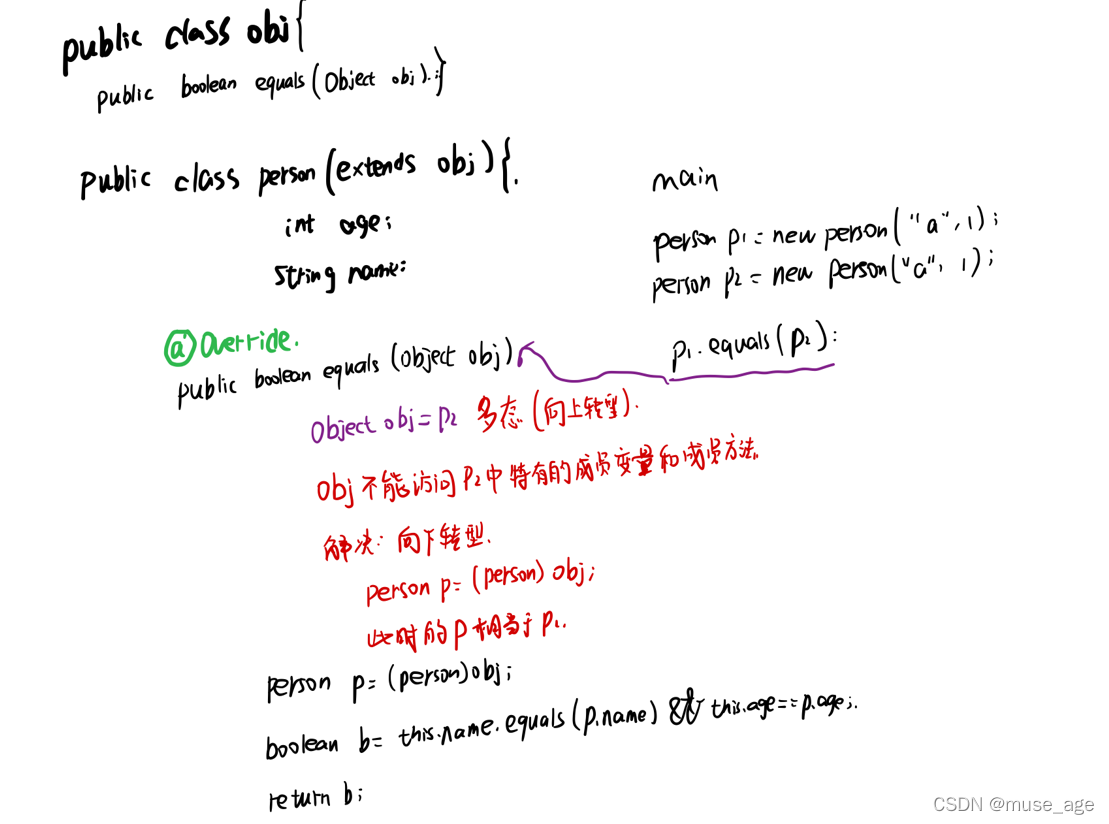 public class obj{
public boolean equals(Object obj).;}
public class person(extends obj){.
int age;
String name:
@Override.
public boolean equals(object obj)
Object obj=p2 多态(向上转型).
Obj不能访问P2中特有的成员变量和成员方法.
解决:向下转型.
person p=(person)obj;
此时的P相当于p1.
person p=(person)obj;
boolean b= this.name.equals(p.name) && this.age==p.age;.
return b;
main
person p1=new person("a",1);
person p2=new person("a",1);
p1.equals(p2):
CSDN @muse_age